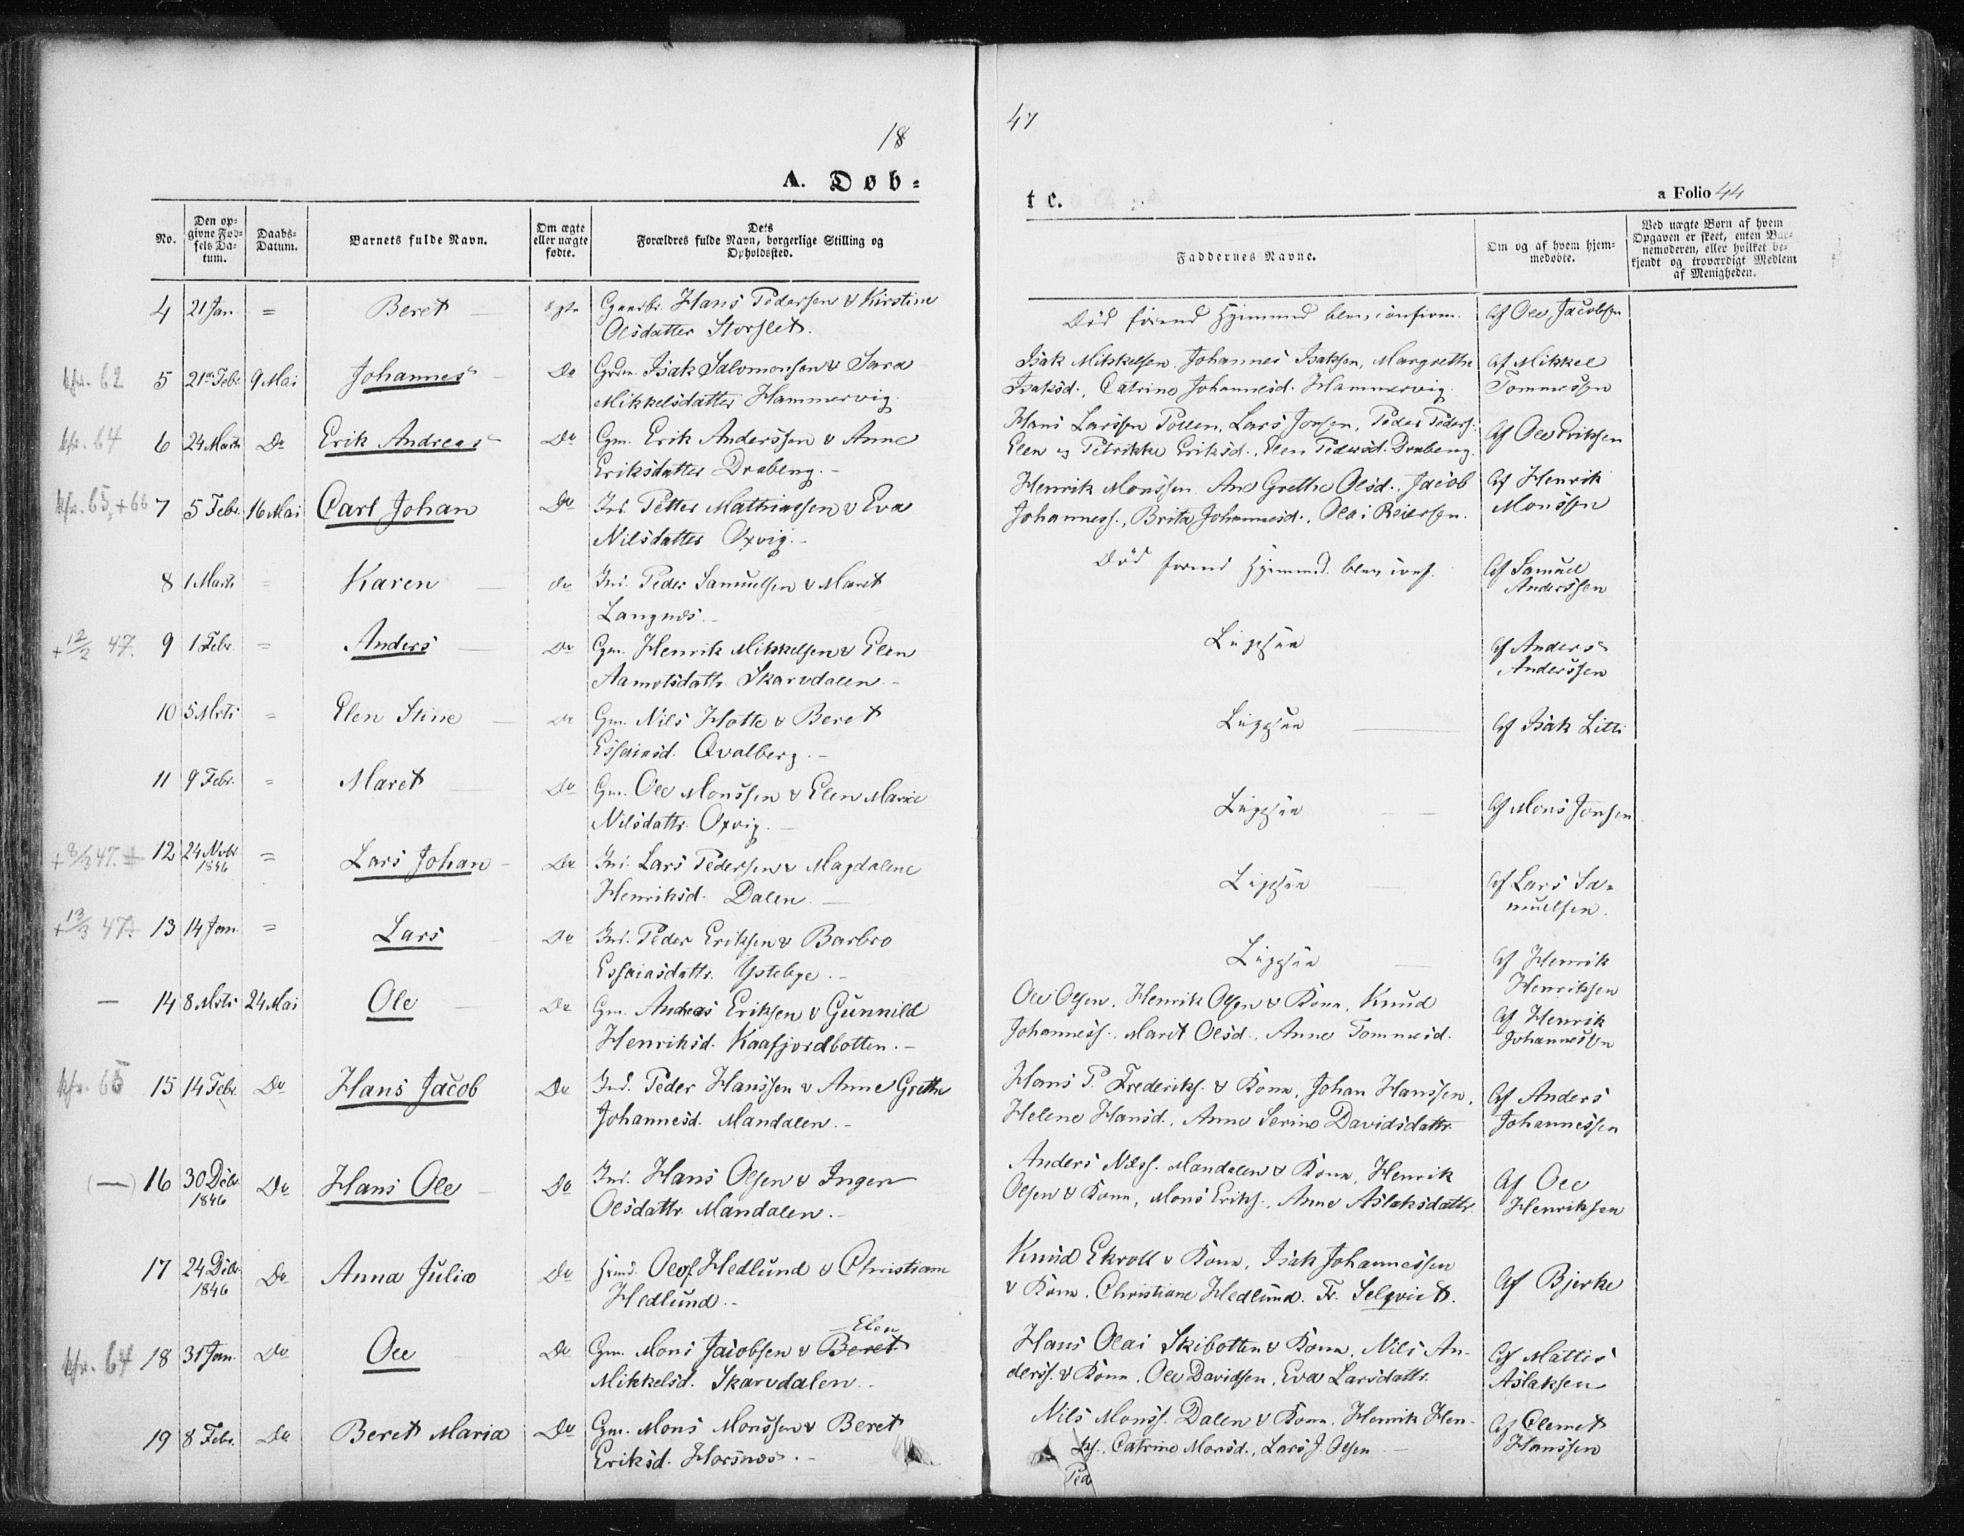 18
47
A. Døb=
te.
a Folio 44
No.
Den op=
givne Fød=
sels Da=
tum.
Daabs=
Datum.
Barnets fulde Navn.
Om ægte
eller uægte
fødte.
Dets
Forældres fulde Navn, borgerlige Stilling og
Opholdssted.
Faddernes Navne.
Om og af hvem hjem=
medøbte.
Ved uægte Børn af hvem
Opgaven er skeet, enten Bar=
nemoderen, eller hvilket be=
kjendt og troværdigt Medlem
af Menigheden.
4 21 Jan. = Beret — ægte Hans Pedersen & Kirstine
Olsdatter Storslet.
Død førend Hjemmed. blev confirm. Af Ole Jacobsen
kfr. 62 5 21de Febr. 9 Mai Johannes Do Gdm. Isak Salomonsen & Sara
Mikkelsdatter Hammervig.
Isak Mikkelsen, Johannes Isaksen, Margrethe
Isaksd., Catrine Johannesd. Hammervig.
Af Mikkel
Tommessen
kfr. 64 6 24 Marts Do Erik Andreas Do Gm. Erik Anderssen & Anne
Eriksdatter Drabeng.-
Hans Larssen Pollen, Lars Jonsen, Peder Peders.
Elen og Petrikke Eriksd., Elen Pedersd. Drabeng.
Af Ole Eriksen
kfr. 65, +66 7 5 Febr. 16 Mai Carl Johan Do Ind. Petter Mathiassen & Eva
Nilsdatter Oxvig.-
Henrik Monssen, Ane Grethe Olsd., Jacob
Johanness., Brita Johannesd., Olai Reiersen.
Af Henrik
Monssen
8 1 Marts = Karen — do Ind. Peder Samuelsen & Maret
Langnæs.-
Død førend Hjemmed. blev conf.
Af Samuel
Anderssen
+12/2 47. 9 1 Febr. = Anders — Do Gm. Henrik Mikkelsen & Elen
Aamotsdattr. Skarvdalen.-
Ligesaa
Af Anders
Anderssen
10 5 Mrts = Elen Stine — Do Gm. Nils Hotte & Beret
Essaiasd. Qvalberg.-
Ligesaa
Af Isak Litti
11 9 Febr. = Maret — Do Gm. Ole Monssen & Elen Marie
Nilsdattr. Oxvig.-
Ligesaa
Af Mons Jonsen
+8/3 47. 12 24 Novbr = Lars Johan - Do Ind. Lars Pedersen & Magdalene
1846
Henriksd. Dalen.—
Ligesaa
Af Lars Sa=
muelsen.
+13/3 47. 13 14 Jan. = Lars Do Ind. Peder Eriksen & Barbro
Essaiasdattr. Ystebye.-
Ligesaa
Af Henrik
Henriksen
— 14 8 Mrts 24 Mai Ole Do Gm. Andreas Eriksen & Gunnild
Henriksd. Kaafjordbotten.-
Ole Olsen, Henrik Olsen & Kone, Knud
Johanness., Maret Olsd., Anne Tommesd.
Af Henrik
Johannessen
kfr. 65 15 14 Febr. Do Hans Jacob Do Ind. Peder Hanssen & Anne Grethe
Johannesd. Mandalen.-
Hans P. Frederiks. & Kone, Johan Hanssen,
Helene Hansd., Anne Serine Davidsdattr.
Af Anders
Johannessen
(—) 16 30 Debr. Do Hans Ole Do Ind. Hans Olsen & Inger
1846
Olsdattr. Mandalen.-
Anders Nilss. Mandalen & Kone, Henrik
Olsen & Kone, Mons Eriks., Anne Aslaksdattr.
Af Ole
Henriksen
17 24 Debr. Do Anna Julia Do Olof Hedlund & Christiane
1846
Hedlund.-
Knud Ekroll & Kone, Isak Johannessen
& Kone, Christiane Hedlund, Fr. Selqvist.
Af Bjerke
Elen
kfr. 64 18 31 Jan. Do Ole Do Gm. Mons Jacobsen & Beret
Mikkelsd. Skarvdalen.-
Hans Olai Skibotten & Kone, Nils An-
derss. & Kone, Ole Davidsen, Eva Larsdattr.
Af Mattis
Aslaksen
19 8 Febr. Do Beret Maria Do Gm. Mons Monssen & Beret
Eriksd. Horsnæs.-
Nils Monss. Dalen & Kone, Henrik Hen-
Catrine Monsd., Lars J. Olsen
Ped
Af Clemet
Hanssen